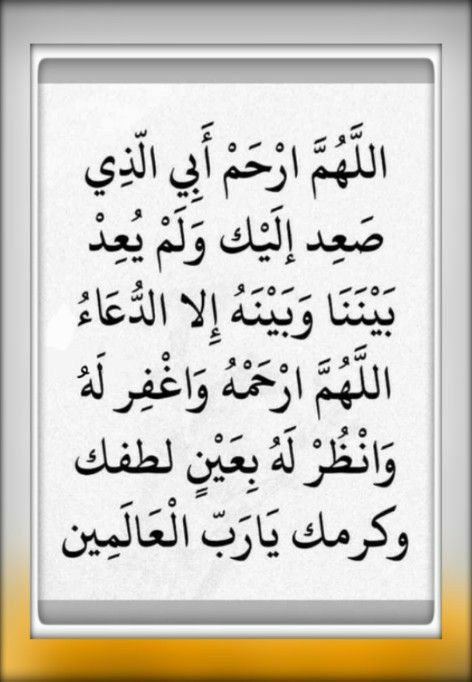 اللَّهُمَّ ارْحَمْ أَبِي الّذِي
صَعِد إلَيْك وَلَمْ يُعِدْ
بَيْنَنَا وَبَيْنَهُ إِلا الدُّعَاءُ
اللَّهُمَّ ارْحَمْهُ وَاغْفِر لَهُ
وَانْظُرْ لَهُ بِعَيْنٍ لطفك
وكرمك يَارَبّ الْعَالَمِين